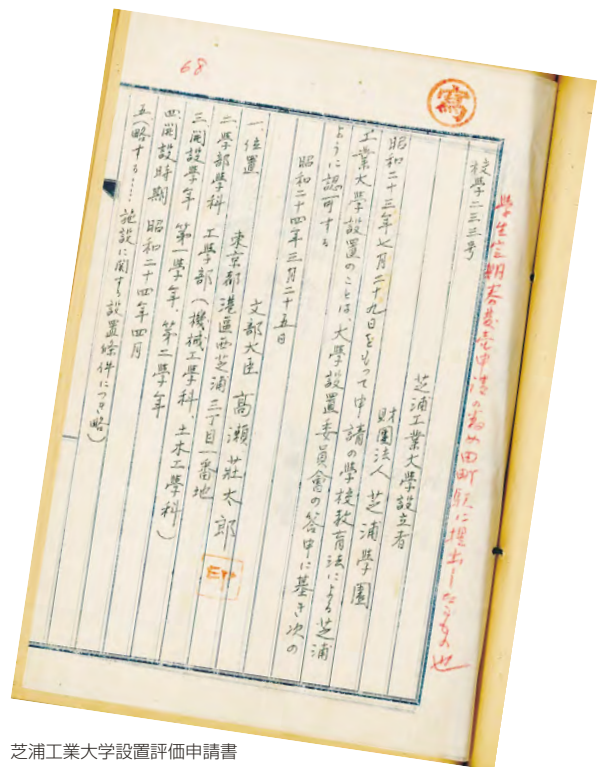 寫
學生定期券発売申請の為め田町駅に提出したるもの也
校學二三三号
芝浦工業大學設立者
財團法人 芝浦學園
昭和二十三年七月二十九日をもって申請の學校教育法による芝浦
工業大學設置のことは、大學設置委員會の答申に基き次の
ように認可する
昭和二十四年三月二十五日
文部大臣 高瀬荘太郎 印
一、位置 東京都港區西芝浦三丁目一番地
二 學部學科 工學部(機械工學科、土木工學科)
三 開設學年 第一學年、第二學年
四 開設時期 昭和二十四年四月
五(略する……施設に関する設置條件につき略)
68
芝浦工業大学設置評価申請書